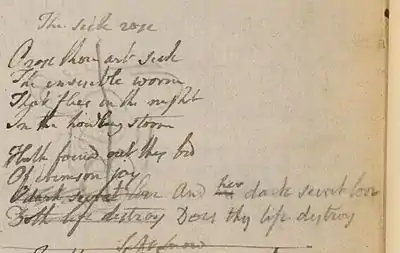 The sick rose
O rose thou art sick
The invisible worm
That flies in the night
In the howling storm
Hath found out thy bed
Of crimson joy
O dark secret love And his her dark secret love
Doth life destroy Does thy life destroy
Soft Snow